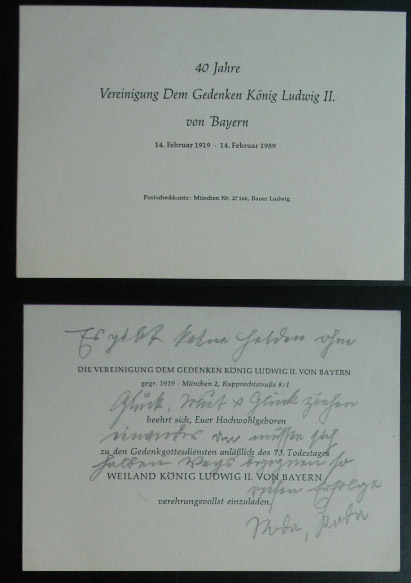 40 Jahre
Vereinigung Dem Gedenken König Ludwig II.
von Bayern
14. Februar 1919 - 14. Februar 1959
Postscheckkonto: München Nr. 27166, Bauer Ludwig
Es gibt keine Helden ohne
DIE VEREINIGUNG DEM GEDENKEN KÖNIG LUDWIG II. VON BAYERN
gegr. 1919 · München 2, Rupprechtstraße 8/1
Glück, Mut & Glück ziehen
beehrt sich, Euer Hochwohlgeboren
einander an müssen sich
zu den Gedenkgottesdiensten anläßlich des 73. Todestages
halben Wegs begegnen so
WEILAND KÖNIG LUDWIG II. VON BAYERN
Erfolge
verehrungsvollst einzuladen.
Roda, Roda